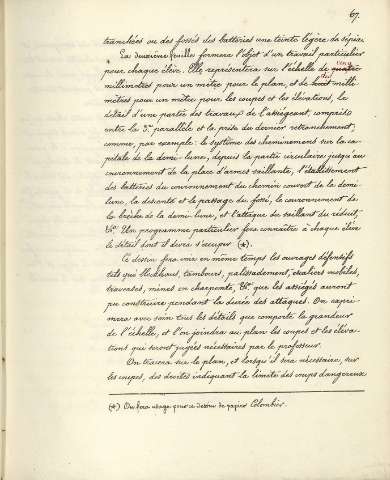 67.
tranchées ou des fossés des batteries une teinte légère de sépia.
La deuxième feuille formera l'objet d'un travail particulier
pour chaque élève. Elle représentera sur l'échelle de quatre
millimètres pour un mètre pour le plan, et de huit milli
mètres pour un mètre pour les coupes et les élévations, le
détail d'une partie des travaux de l'assiégeant, compris
entre la 3e parallèle et la prise du dernier retranchement;
comme, par exemple: le système des cheminemens sur la ca-
pitale de la demi-lune, depuis la partie circulaire jusqu'au
couronnement de la place d'armes saillante, l'établissement
des batteries du couronnement du chemin couvert de la demi-
lune, la descente et le passage du fossé, le couronnement de
la brèche de la demi-lune, et l'attaque du saillant du réduit,
&a. Un programme particulier fera connaître à chaque élève
le détail dont il devra s'occuper (*).
Ce dessin fera voir en même temps les ouvrages défensifs
tels que blockhaus, tambours, palissadement, chaînes mobiles,
traverses, mines en charpente, &a. que les assiégés auront
pu construire pendant la durée des attaques. On expri-
mera avec soin tous les détails que comporte la grandeur
de l'échelle, et l'on joindra au plan les coupes et les éléva-
tions qui seront jugées nécessaires par le professeur.
On tracera sur le plan, et lorsqu'il sera nécessaire, sur
les coupes, des droites indiquant la limite des coups dangereux
(*) On fera usage pour ce dessin de papier Colombier.